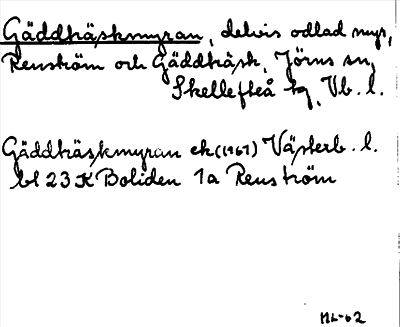 Gäddträskmyran, delvis odlad myr,
Renström och Gäddträsk, Jörns sn,
Skellefteå tg, Vb. l.
Gäddträskmyran ek (1967) Västerb. l.
bl 23 K Boliden 1a Renström
ML-62